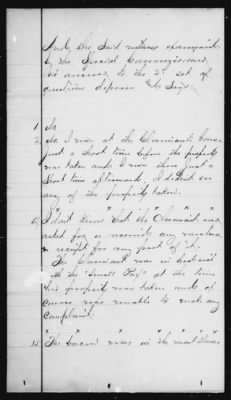 And the said witness examined
by the Special Commissioner
in answer to the 2d set of
questions deposes & says
1. No
2. No. I was at the Claimants house
just a short time before the property
was taken and I was there just a
short time afterwards, I didnt see
any of the property taken.
x x x x
10. I dont know that the Claimant
asked for, or received any voucher
or receipt for any part of it.
The Claimant was in
with the "Small Pox" at the time
his property was taken and of
course was unable to make any
complaint.
x x x x x
15. The bacon was in the meat House